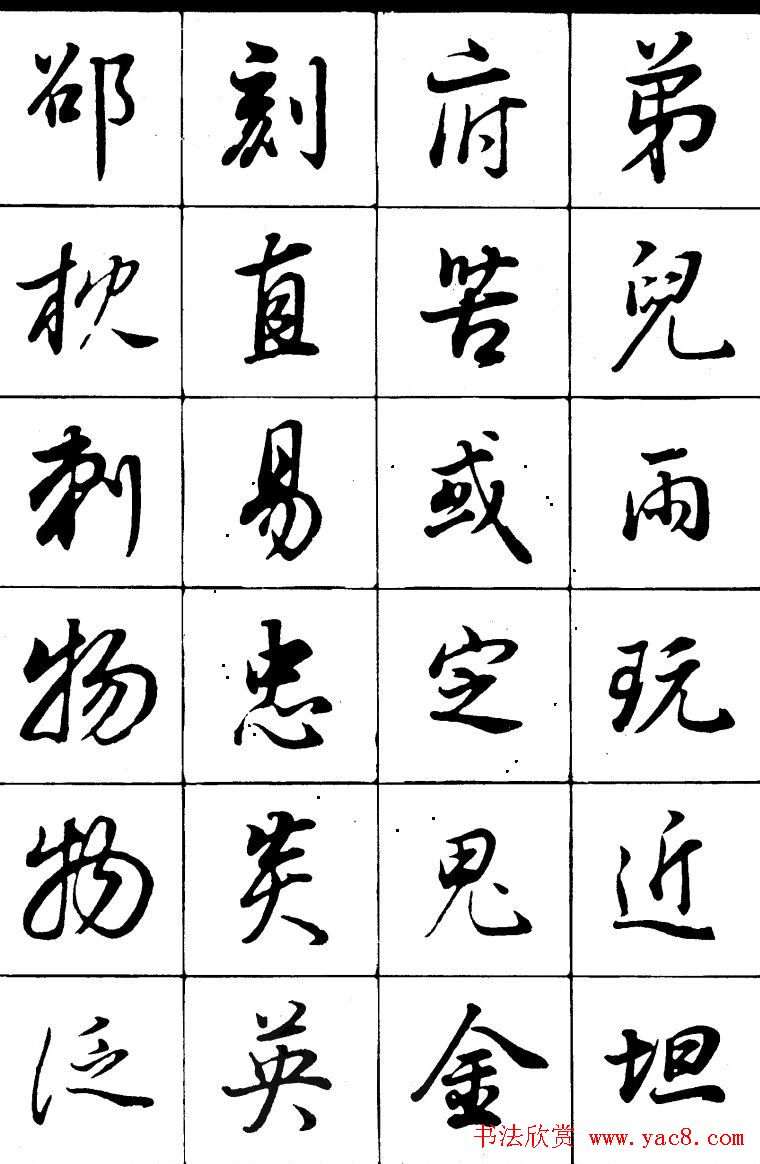 弟兒雨玩近坦
府苦或定鬼金
刻直易忠炎英
邵枕刺物物泛
书法欣赏 www.yac8.com